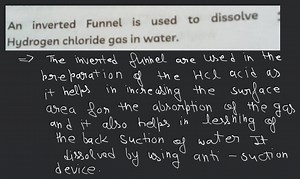 An inverted Funnel is used to dissolve
Hydrogen chloride gas in water.
⇒ The inverted funnel are used in the
preparation of the HCl acid as
it helps in increasing the surface
area for the absorption of the gas
and it also helps in lessning of
the back suction of water It
dissolved by using anti-suction
device.